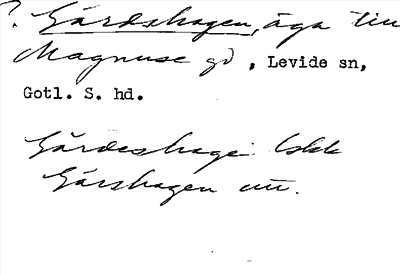 ?. Gärdshagen, äga till
Magnuse gd, Levide sn,
Gotl. S. hd.
Gärdeshage
Gärshagen